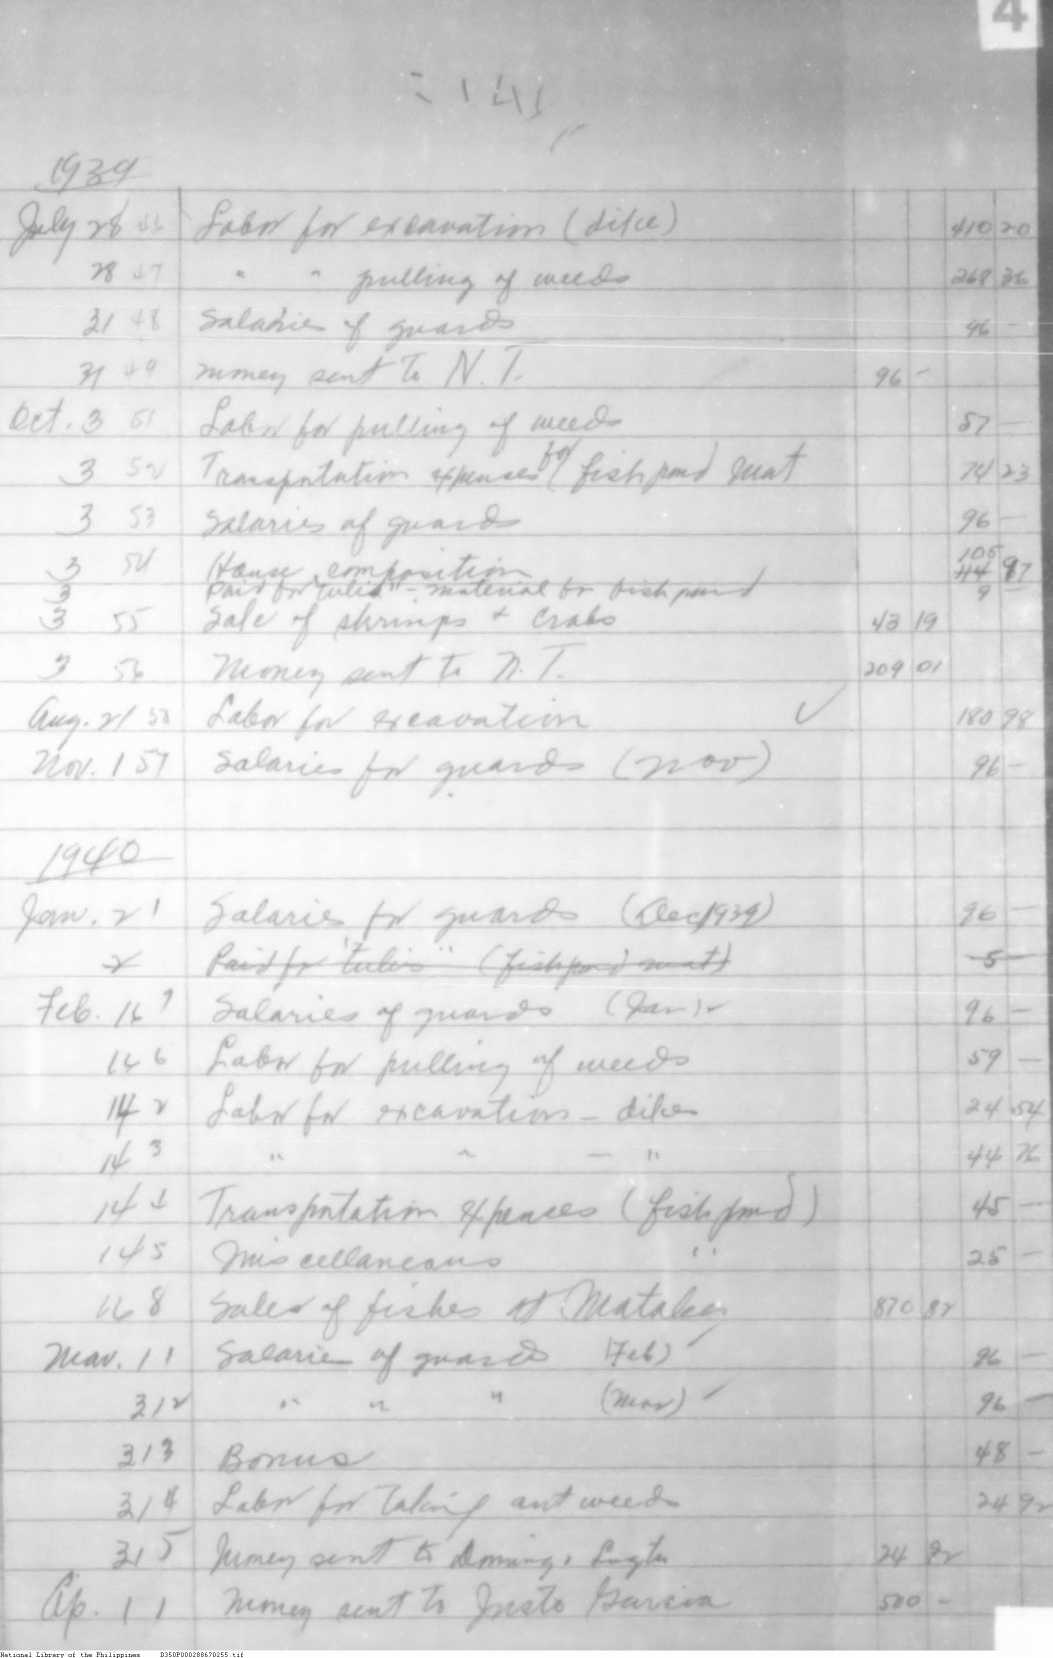 4
1939
July 28 46 Labor for excavation (dike) 410 20
28 47 " " pulling of weeds 268 36
31 48 Salaries of guards 96 -
31 49 money sent to N. T. 96 -
Oct. 3 51 Labor for pulling of weeds 57 -
3 52 Transportation expenses for fishpond mat 74 23
3 53 Salaries of guards 96 -
3 54 House composition 105 44 97
3 Paid for "tulis" - material for fishpond 9 -
3 55 Sale of shrimps + crabs 43 19
3 56 Money sent to N. T. 209 01
Aug. 21 58 Labor for excavation ✓ 180 98
Nov. 1 57 Salaries for guards (Nov) 96 -
1940
Jan. 2 1 Salaries for guards (Dec 1939) 96 -
2 Paid for "tulis" (fishpond mat) 5 -
Feb. 16 7 Salaries of guards (Jan) 96 -
14 6 Labor for pulling of weeds 59 -
14 2 Labor for excavation - dikes 24 54
14 3 " " - " 44 76
14 4 Transportation expenses (fishpond) 45 -
14 5 Miscellaneous " 25 -
16 8 Sales of fishes at 870 82
Mar. 1 1 Salaries of guards (Feb) 96 -
31 2 " " " (Mar) 96 -
31 3 Bonus 48 -
31 4 Labor for taking out weeds 24 92
31 5 Money sent to 24 92
Ap. 1 1 Money sent to Justo Garcia 500 -
National Library of the Philippines D350P000288670255.tif